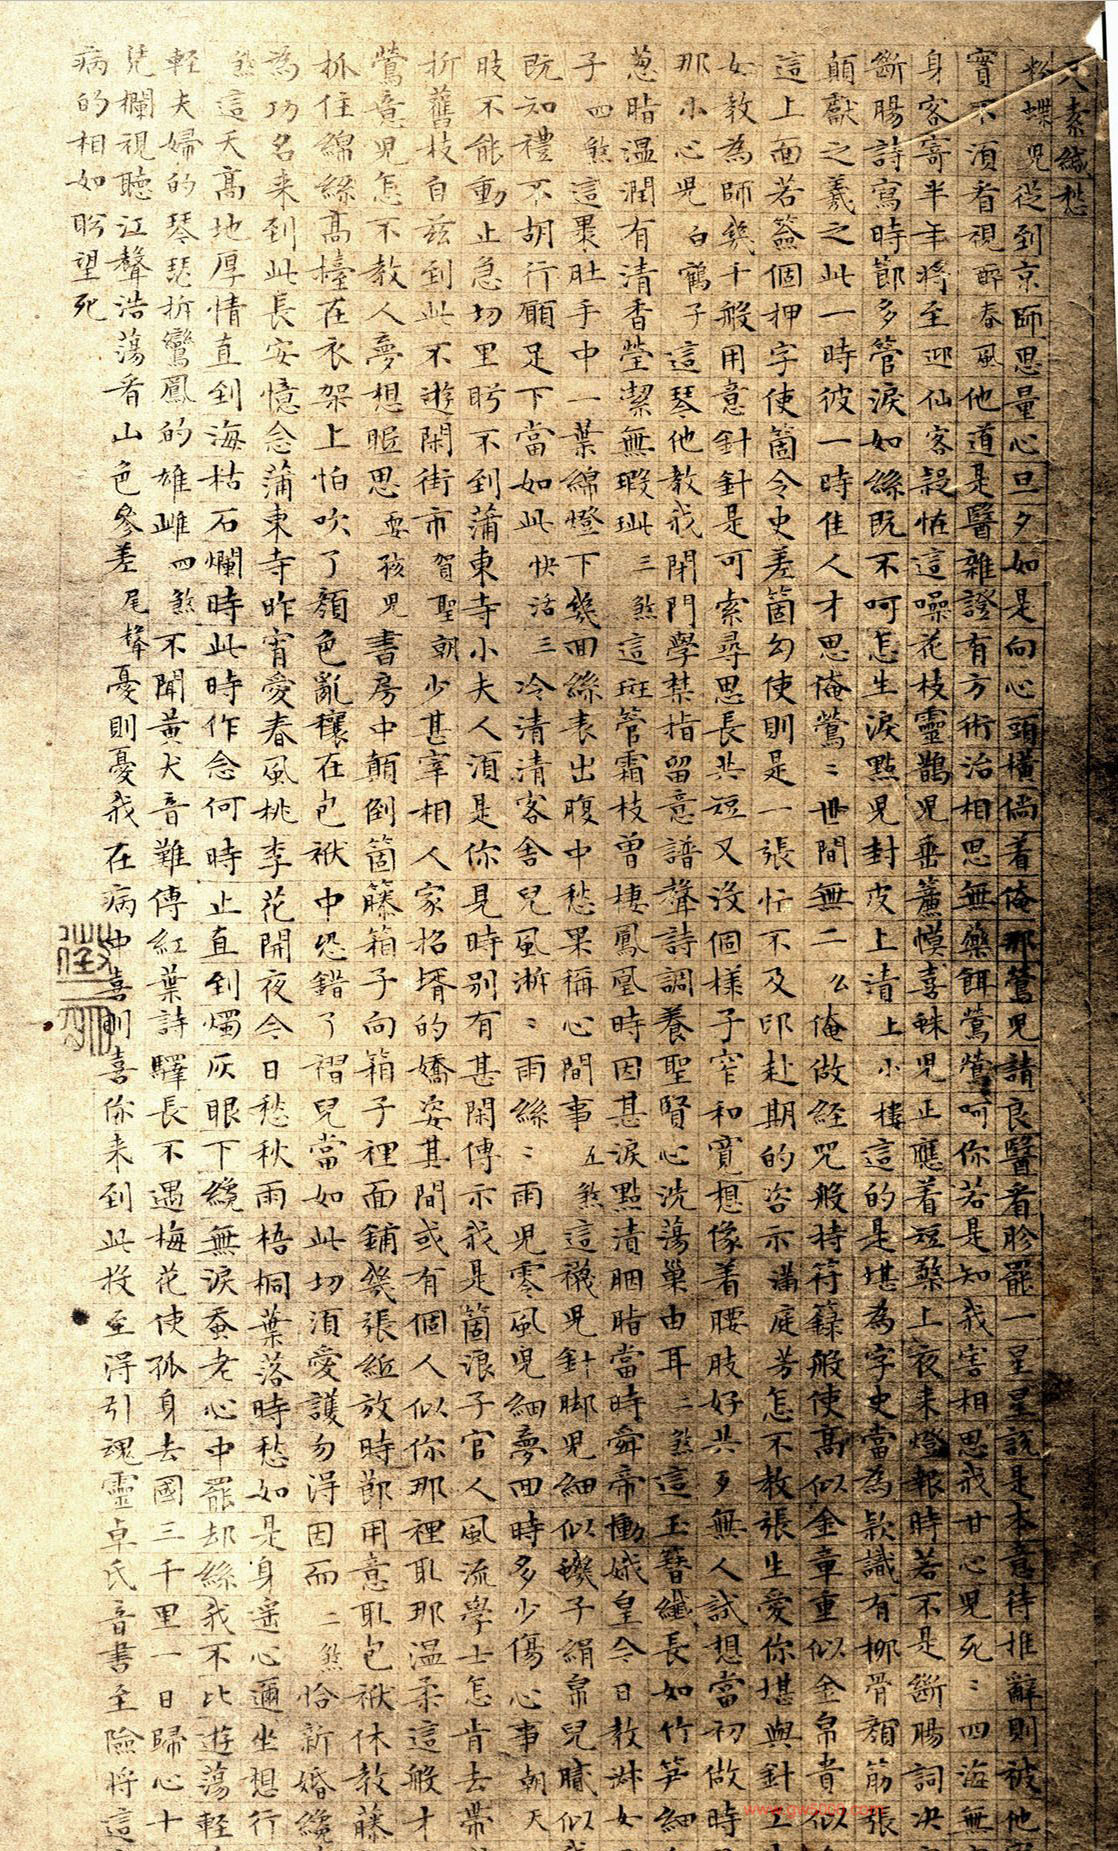 尺素緘愁
粉蝶兒從到京師思量心旦夕如是向心頭橫倘着俺那鶯兒請良醫看胗罷一星星說是本意待推辭則被他
實不須看視醉春風他道是醫雜證有方術治相思無藥餌鶯鶯呵你若是知我害相思我甘心兒死〻四海無
身客寄半年將至迎仙客疑恠這噪花枝靈鵲兒垂簾幙喜蛛兒正應着短檠上夜来燈報時若不是斷腸詞决
斷腸詩寫時節多管淚如絲既不呵怎生淚點兒封皮上漬上小樓這的是堪為字史當為款識有柳骨顏筋張
顛獻之羲之此一時彼一時佳人才思俺鶯〻世間無二么俺做經咒般持符籙般使高似金章重似金帛貴似
這上面若簽個押字使箇令史差箇勾使則是一張忙不及印赴期的咨示滿庭芳怎不教張生愛你堪與針工
女教為師幾千般用意針針是可索尋思長共短又沒個樣子窄和寬想像着腰肢好共歹無人試想當初做時
那小心兒白鶴子這琴他教我閉門學禁指留意譜聲詩調養聖賢心洗蕩巢由耳二煞這玉簪纖長如竹笋細
葱脂温潤有清香瑩潔無瑕玼三煞這班管霜枝曾棲鳳凰時因甚淚點漬胭脂當時舜帝慟娥皇今日教淑女
子四煞這裹肚手中一葉綿燈下幾回絲表出腹中愁果稱心間事五煞這襪兒針脚兒細似蟣子絹帛兒膩似
既知禮不胡行願足下當如此快活三冷清清客舍兒風淅〻雨絲〻雨兒零風兒細夢回時多少傷心事朝天
肢不能動止急切里盻不到蒲東寺小夫人須是你見時別有甚閑傳示我是箇浪子官人風流學士怎肯去帶
折舊枝自兹到此不遊閑街市賀聖朝少甚宰相人家招壻的嬌姿其間或有個人似你那裡取那温柔這般才
鶯意兒怎不教人夢想眠思耍孩兒書房中顛倒箇籐箱子向箱子裡面鋪幾張紙放時節用意取包袱休教藤
抓住綿絲高擡在衣架上怕吹了顏色亂穰在包袱中恐錯了褶兒當如此切須愛護勿得因而二煞恰新婚纔
為功名来到此長安憶念蒲東寺昨宵愛春風桃李花開夜今日愁秋雨梧桐葉落時愁如是身遥心邇坐想行
煞這天高地厚情直到海枯石爛時此時作念何時止直到燭灰眼下纔無淚蚕老心中罷却絲我不比遊蕩輕
輕夫婦的琴瑟折鸞鳳的雄雌四煞不聞黃犬音難傳紅葉詩驛長不遇梅花使孤身去國三千里一日歸心十
凭欄視聽江聲浩蕩看山色參差尾聲憂則憂我在病中喜則喜你来到此投至得引魂靈卓氏音書至險將這
病的相如盻望死